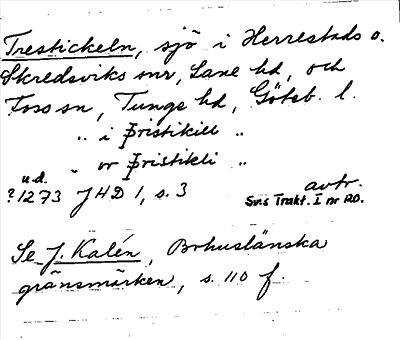 Trestickeln, sjö i Herrestads o.
Skredsviks snr, Lane hd, och
Foss sn, Tunge hd, Göteb. l.
„ i Þristikill „
„ or Þristikli „
u.d.
?1273 JHD 1, s. 3 avtr.
Sv:s Trakt. I nr 120.
Se J. Kalén, Bohuslänska
gränsmärken, s. 110 f.